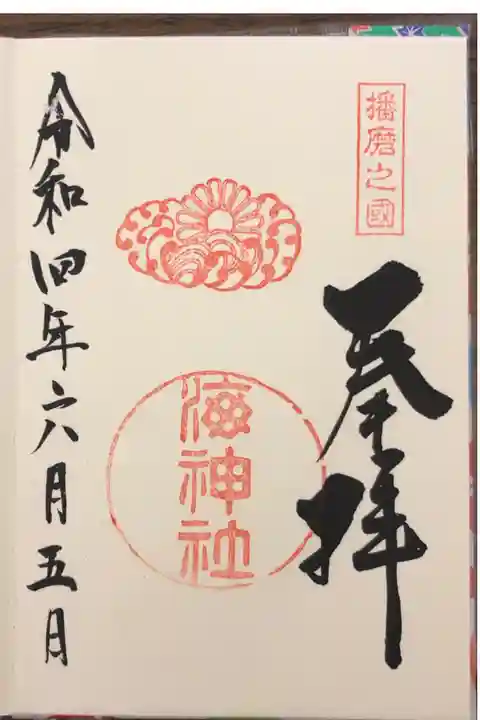 播磨之國
奉拝
海神社
令和四年六月五日